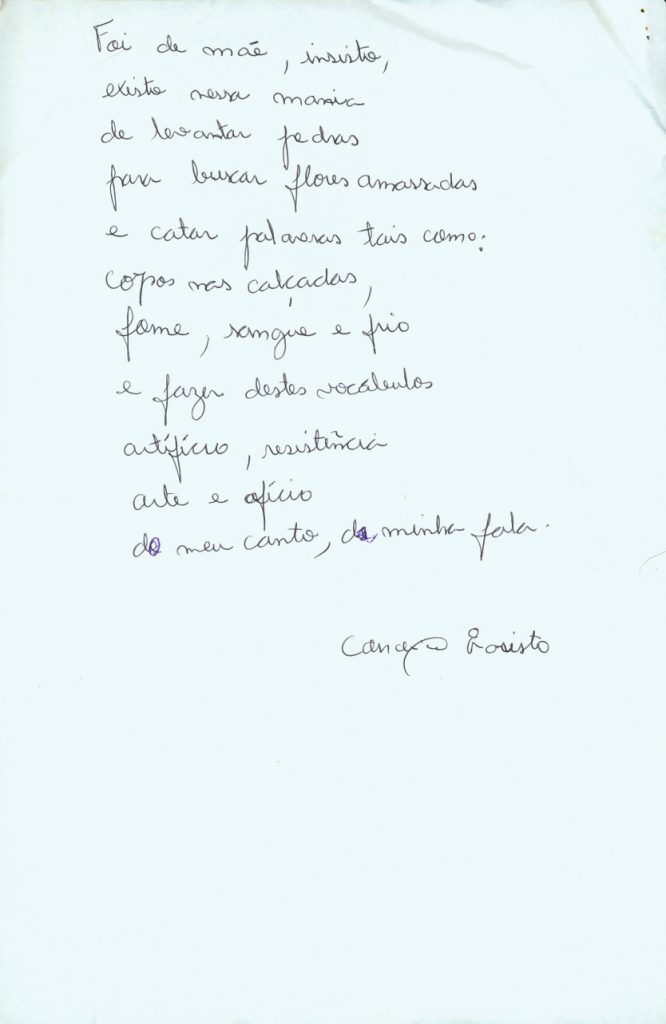 Foi de mãe, insisto,
existo nessa mania
de levantar pedras
para buscar flores amassadas
e catar palavras tais como:
copos nas calçadas,
fome, sangue e frio
e fazer destes vocábulos
artifício, resistência
arte e ofício
do meu canto, da minha fala.
Conceição Evaristo